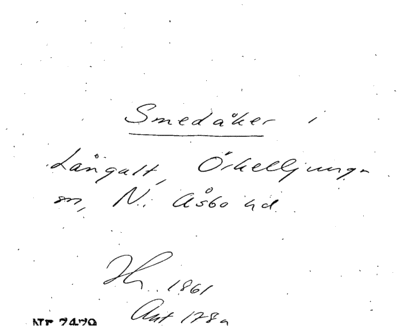 Smedåker i
Långalt, Örkelljunga
sn, N. Åsbo hd
1961
Ant 178a
Nr 7479